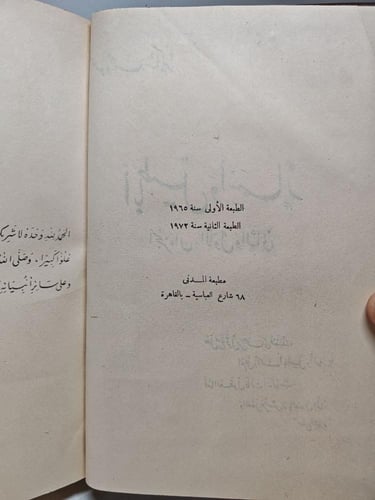 الطبعة الأولى سنة ١٩٦٥
الطبعة الثانية سنة ١٩٧٢
مطبعة المدنى
٦٨ شارع العباسية ــ بالقاهرة
الحمدُ للهِ وَحْدَهُ لا شريك
علوًّا كبيرًا. وَصَلَّى اللهُ
وعلى سائر أنبيائه